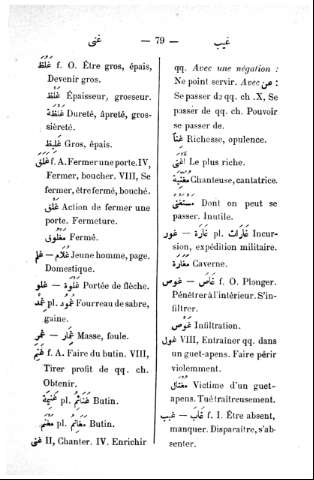 غنى — 79 — غيب
غَلُظَ f. O. Être gros, épais,
Devenir gros.
غِلَظ Épaisseur, grosseur.
غِلْظَة Dureté, âpreté, gros-
sièreté.
غَلِيظ Gros, épais.
غَلَقَ f. A. Fermer une porte. IV,
Fermer, boucher. VIII, Se
fermer, être fermé, bouché.
غَلْق Action de fermer une
porte. Fermeture.
مَغْلُوق Fermé.
غلم — غُلَام Jeune homme, page.
Domestique.
غلو — غَلْوَة Portée de flèche.
غِمْد pl. غُمُود Fourreau de sabre,
gaine.
غمر — غِمَار Masse, foule.
غَنِمَ f. A. Faire du butin. VIII,
Tirer profit de qq. ch.
Obtenir.
غَنِيمَة pl. غَنَائِم Butin.
مَغْنَم pl. مَغَانِم Butin.
غنى II, Chanter. IV. Enrichir
qq. Avec une négation :
Ne point servir. Avec عن :
Se passer de qq. ch. X, Se
passer de qq. ch. Pouvoir
se passer de.
Richesse, opulence.
أَغْنَى Le plus riche.
مُغَنِّيَة Chanteuse, cantatrice.
مُسْتَغْنَى Dont on peut se
passer. Inutile.
غور — غَارَة pl. غَارَات Incur-
sion, expédition militaire.
مَغَارَة Caverne.
غوص — غَاصَ f. O. Plonger.
Pénétrer à l'intérieur. S'in-
filtrer.
غَوْص Infiltration.
غول VIII, Entraîner qq. dans
un guet-apens. Faire périr
violemment.
مُغْتَال Victime d'un guet-
apens. Tué traîtreusement.
غيب — غَابَ f. I. Être absent,
manquer. Disparaître, s'ab-
senter.